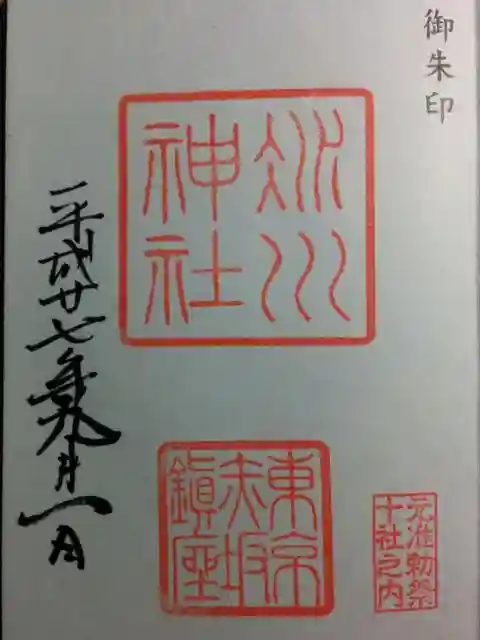 御朱印
氷川
神社
東京
赤坂
鎮座
元准勅祭
十社之内
平成廿七年九月一日